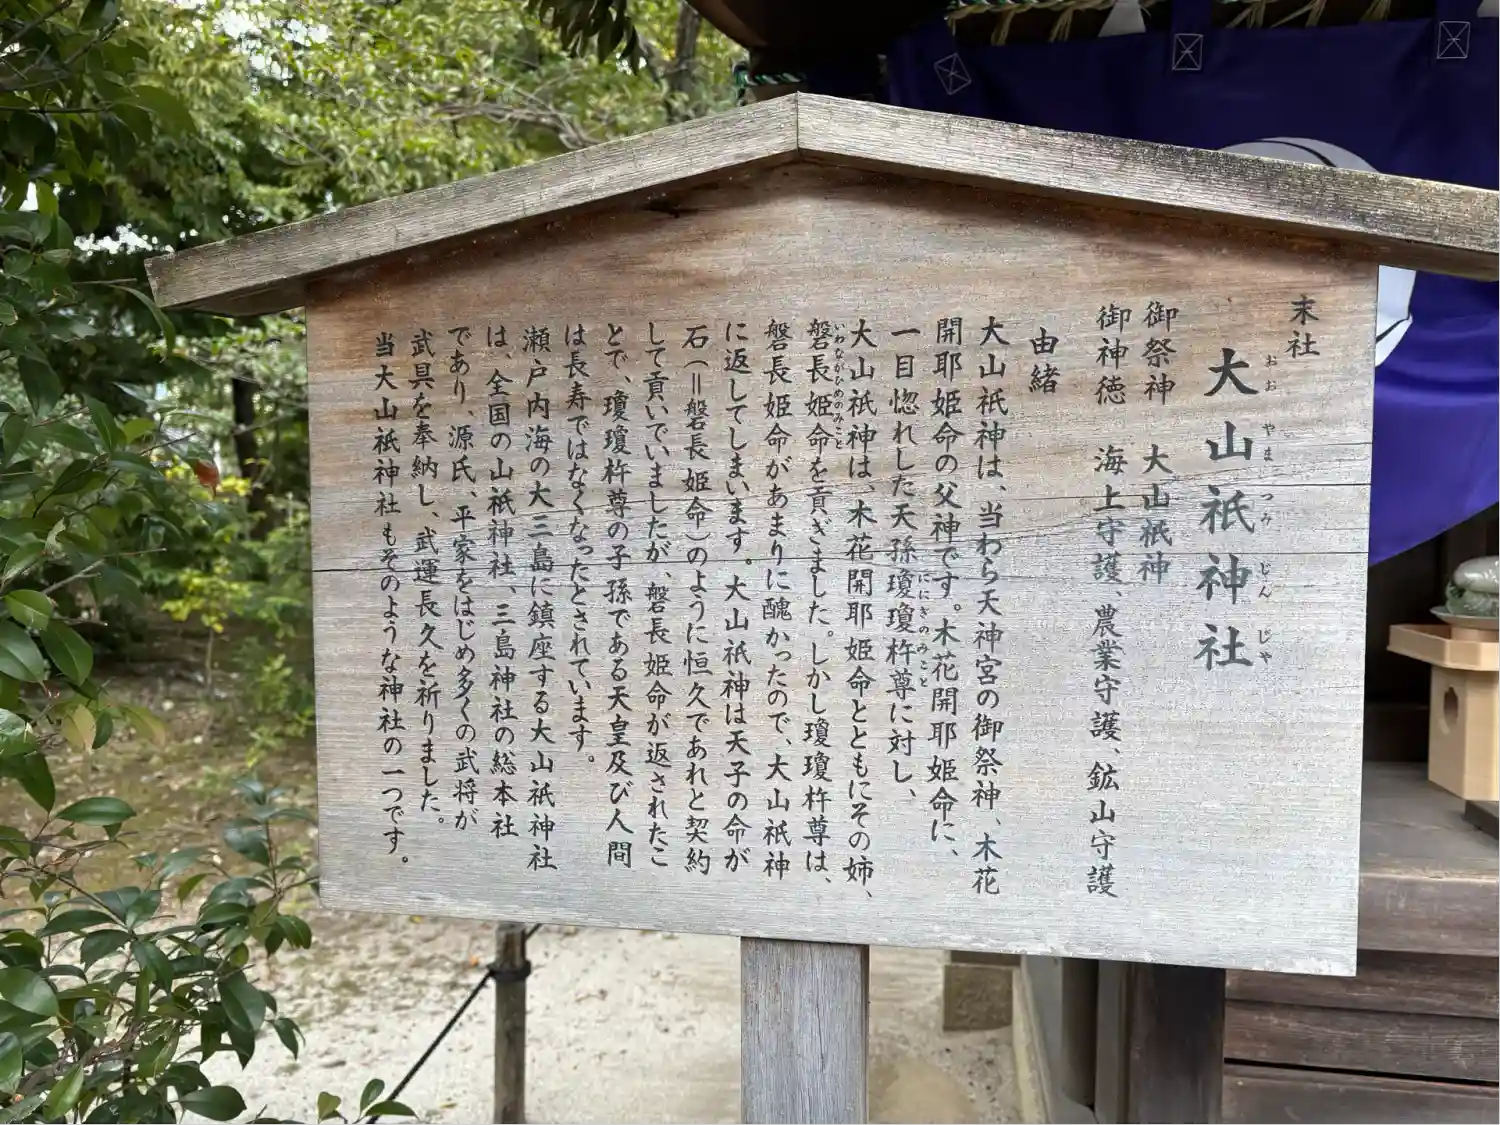 末社
大山祇神社
おお やま つみ じん じゃ
御祭神 大山祇神
御神徳 海上守護、農業守護、鉱山守護
由緒
大山祇神は、当わら天神宮の御祭神、木花
開耶姫命の父神です。木花開耶姫命に、
一目惚れした天孫瓊瓊杵尊に対し、
ににぎのみこと
大山祇神は、木花開耶姫命とともにその姉、
磐長姫命を貢ぎました。しかし瓊瓊杵尊は、
いわながひめのみこと
磐長姫命があまりに醜かったので、大山祇神
に返してしまいます。大山祇神は天子の命が
石(＝磐長姫命)のように恒久であれと契約
して貢いでいましたが、磐長姫命が返されたこ
とで、瓊瓊杵尊の子孫である天皇及び人間
は長寿ではなくなったとされています。
瀬戸内海の大三島に鎮座する大山祇神社
は、全国の山祇神社、三島神社の総本社
であり、源氏、平家をはじめ多くの武将が
武具を奉納し、武運長久を祈りました。
当大山祇神社もそのような神社の一つです。